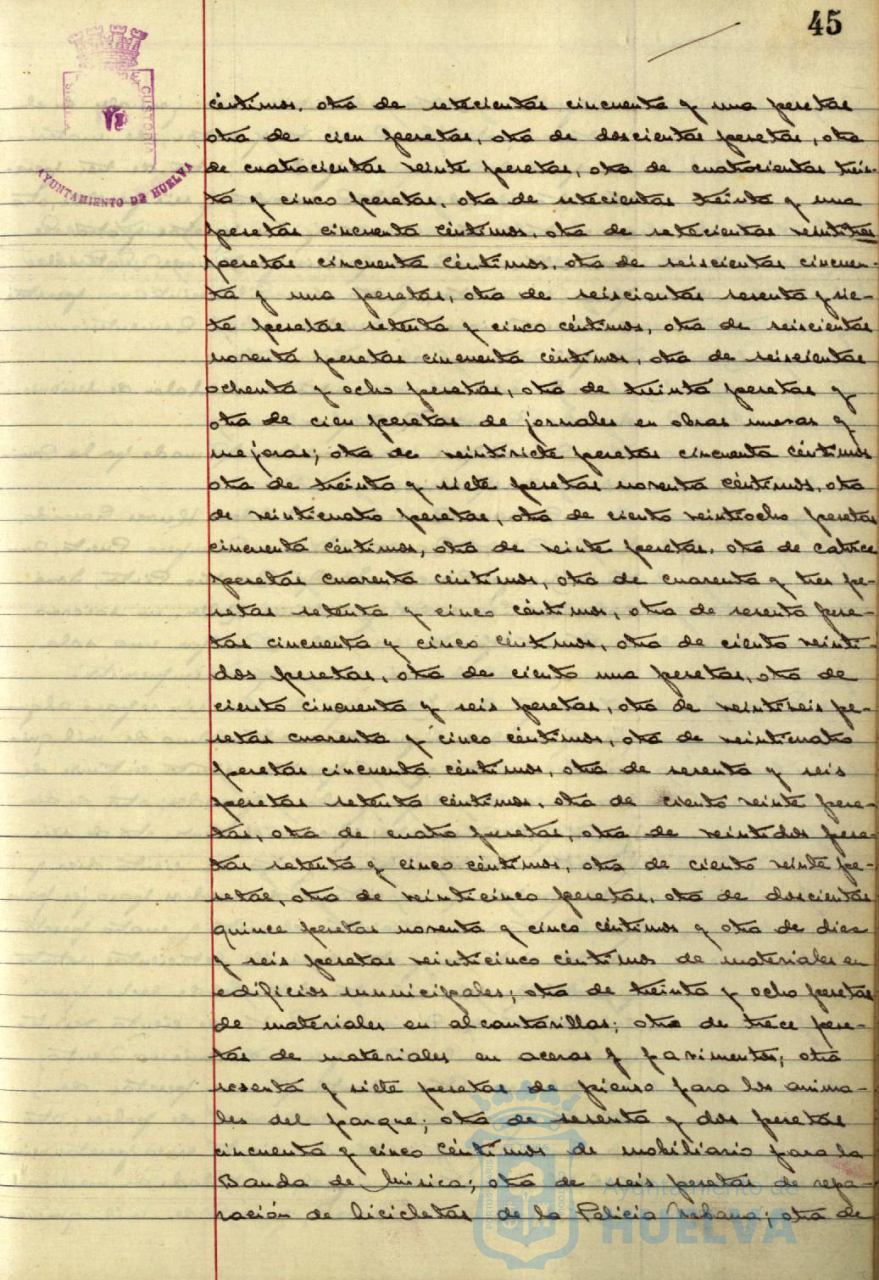 45
AYUNTAMIENTO DE HUELVA
céntimos, otra de setecientas cincuenta y una pesetas
otra de cien pesetas, otra de doscientas pesetas, otra
de cuatrocientas veinte pesetas, otra de cuatrocientas trein-
ta y cinco pesetas, otra de setecientas treinta y una
pesetas cincuenta céntimos, otra de setecientas veintitres
pesetas cincuenta céntimos, otra de seiscientas cincuen-
ta y una pesetas, otra de seiscientas sesenta y sie-
te pesetas setenta y cinco céntimos, otra de seiscientas
noventa pesetas cincuenta céntimos, otra de seiscientas
ochenta y ocho pesetas, otra de treinta pesetas y
otra de cien pesetas de jornales en obras nuevas y
mejoras; otra de veintisiete pesetas cincuenta céntimos
otra de treinta y siete pesetas noventa céntimos, otra
de veinticuatro pesetas, otra de ciento veintiocho pesetas
cincuenta céntimos, otra de veinte pesetas, otra de catorce
pesetas cuarenta céntimos, otra de cuarenta y tres pe-
setas setenta y cinco céntimos, otra de sesenta pese-
tas cincuenta y cinco céntimos, otra de ciento veinti-
dos pesetas, otra de ciento una pesetas, otra de
ciento cincuenta y seis pesetas, otra de veintiseis pe-
setas cuarenta y cinco céntimos, otra de veinticuatro
pesetas cincuenta céntimos, otra de sesenta y seis
pesetas setenta céntimos, otra de ciento veinte pese-
tas, otra de cuatro pesetas, otra de veintidos pese-
tas setenta y cinco céntimos, otra de ciento veinte pe-
setas, otra de veinticinco pesetas, otra de doscientas
quince pesetas noventa y cinco céntimos y otra de diez
y seis pesetas veinticinco céntimos de materiales en
edificios municipales; otra de treinta y ocho pesetas
de materiales en alcantarillas; otra de trece pese-
tas de materiales en aceras y pavimentos; otra
sesenta y siete pesetas de pienso para los anima-
les del parque; otra de sesenta y dos pesetas
cincuenta y cinco céntimos de mobiliario para la
Banda de Música; otra de seis pesetas de repa-
ración de bicicletas de la Policia Urbana; otra de
Ayuntamiento de
HUELVA